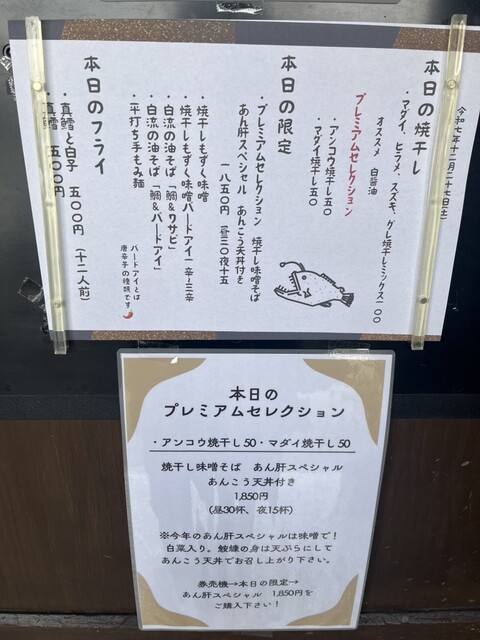 令和七年十二月二十七日(土)
本日の焼干し
・マダイ、ヒラメ、スズキ、グレ焼干しミックス一〇〇
オススメ 白醤油
プレミアムセレクション
・アンコウ焼干し五〇
・マダイ焼干し五〇
本日の限定
・プレミアムセレクション 焼干し味噌そば
あん肝スペシャル あんこう天丼付き
一八五〇円 昼三〇夜十五
・焼干しもずく味噌
・焼干しもずく味噌バードアイ一辛~三辛
・白流の油そば「鯛&ワサビ」
・白流の油そば「鯛&バードアイ」
・平打ち手もみ麺
バードアイとは
唐辛子の種類です
本日のフライ
・真鱈と白子 五〇〇円 (十二人前)
・真鱈 五〇〇円
本日の
プレミアムセレクション
・アンコウ焼干し50・マダイ焼干し50
焼干し味噌そば あん肝スペシャル
あんこう天丼付き
1,850円
(昼30杯、夜15杯)
※今年のあん肝スペシャルは味噌で!
白菜入り。鮟鱇の身は天ぷらにして
あんこう天丼でお召し上がり下さい。
券売機→本日の限定→
あん肝スペシャル 1,850円を
ご購入下さい!